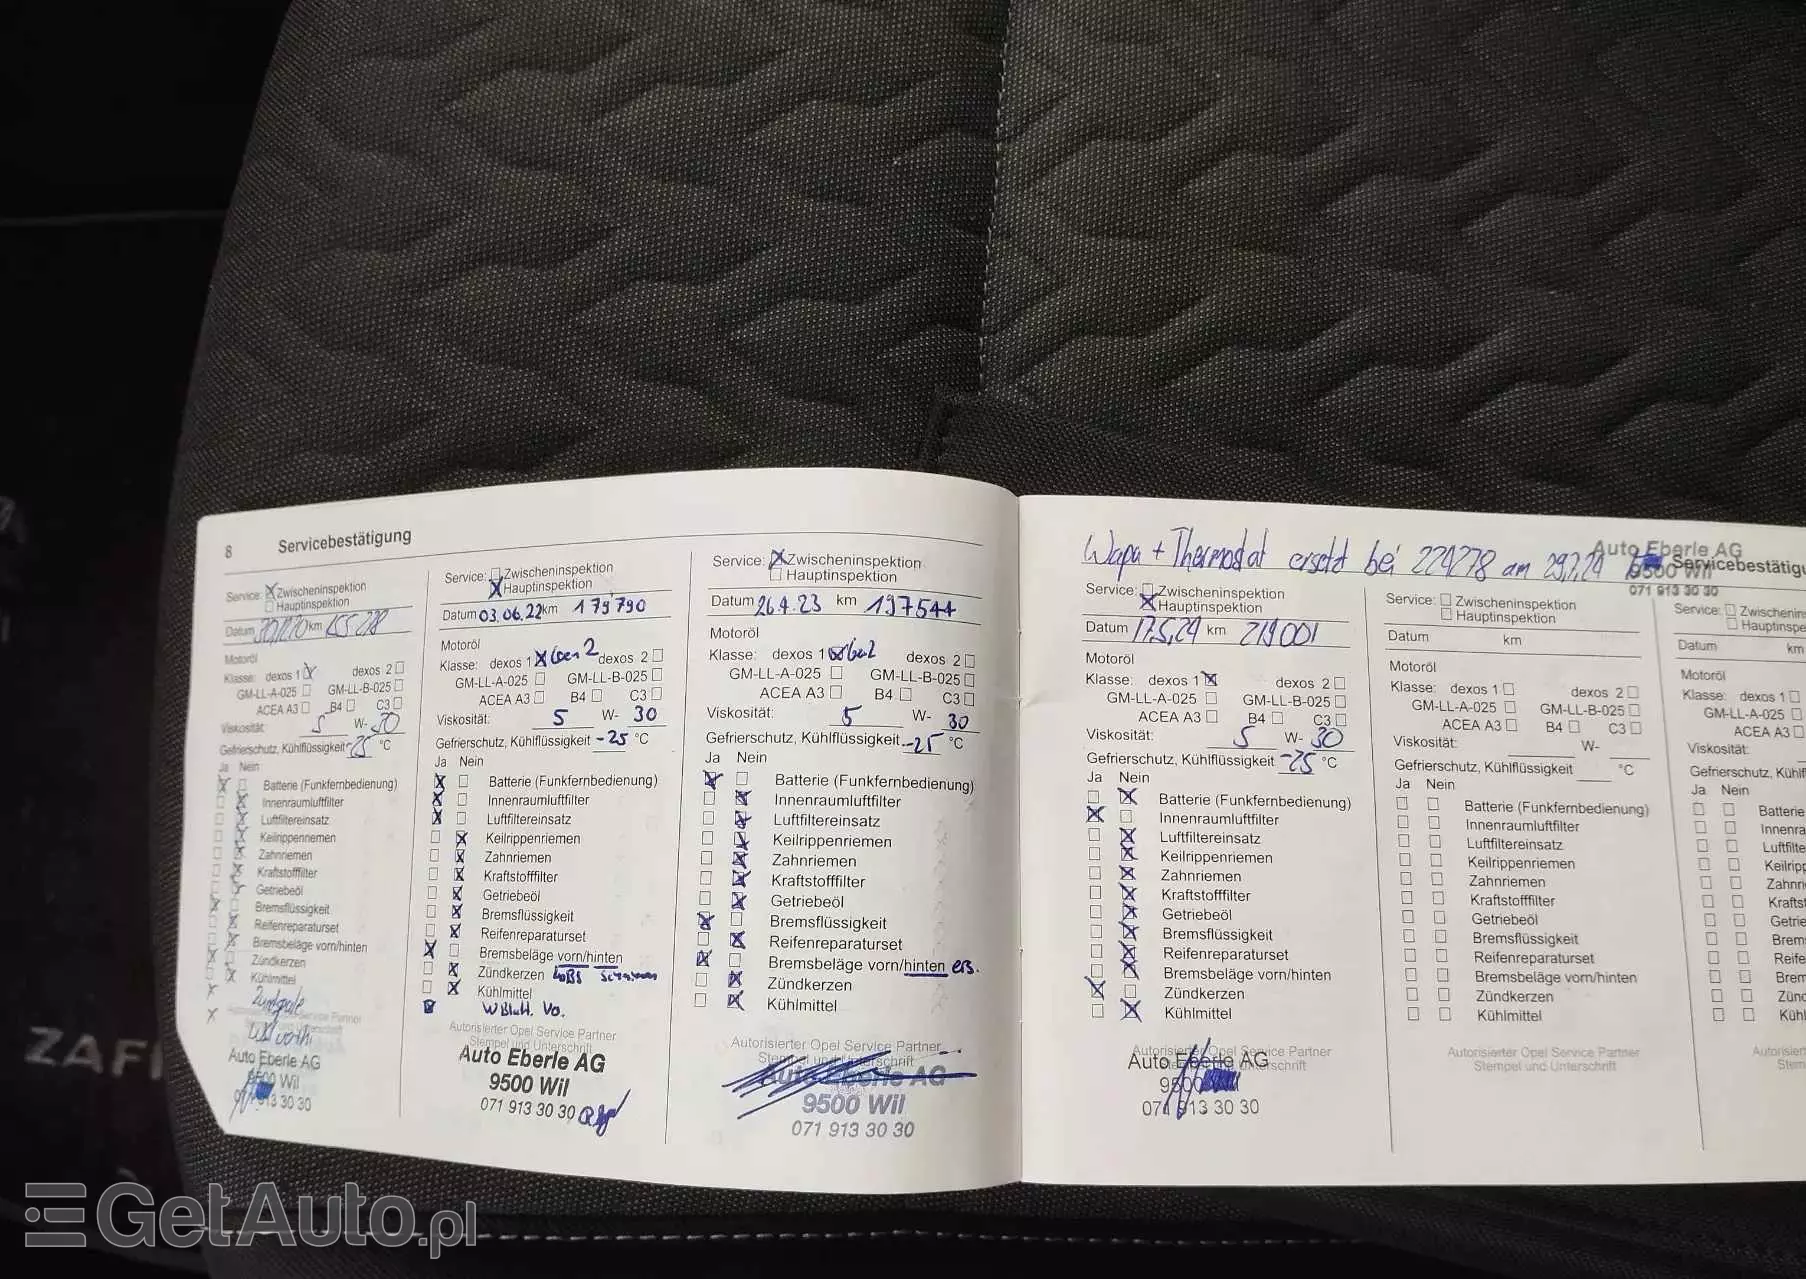 8 Servicebestätigung
Service: Zwischeninspektion
Hauptinspektion
Datum km 155 278
Motoröl
Klasse: dexos 1 dexos 2
GM-LL-A-025 GM-LL-B-025
ACEA A3 B4 C3
Viskosität: 5 W- 30
Gefrierschutz, Kühlflüssigkeit -25 °C
Ja Nein
Batterie (Funkfernbedienung)
Innenraumluftfilter
Luftfiltereinsatz
Keilrippenriemen
Zahnriemen
Kraftstofffilter
Getriebeöl
Bremsflüssigkeit
Reifenreparaturset
Bremsbeläge vorn/hinten
Zündkerzen
Kühlmittel
Auto Eberle AG
9500 Wil
913 30 30
Service: Zwischeninspektion
Hauptinspektion
Datum 03.06.22 km 179790
Motoröl
Klasse: dexos 1 dexos 2
GM-LL-A-025 GM-LL-B-025
ACEA A3 B4 C3
Viskosität: 5 W- 30
Gefrierschutz, Kühlflüssigkeit -25 °C
Ja Nein
Batterie (Funkfernbedienung)
Innenraumluftfilter
Luftfiltereinsatz
Keilrippenriemen
Zahnriemen
Kraftstofffilter
Getriebeöl
Bremsflüssigkeit
Reifenreparaturset
Bremsbeläge vorn/hinten
Zündkerzen
Kühlmittel
WBlatt. Vo.
Autorisierter Opel Service Partner
Stempel und Unterschrift
Auto Eberle AG
9500 Wil
071 913 30 30
Service: Zwischeninspektion
Hauptinspektion
Datum 26.4.23 km 197544
Motoröl
Klasse: dexos 1 dexos 2
GM-LL-A-025 GM-LL-B-025
ACEA A3 B4 C3
Viskosität: 5 W- 30
Gefrierschutz, Kühlflüssigkeit -25 °C
Ja Nein
Batterie (Funkfernbedienung)
Innenraumluftfilter
Luftfiltereinsatz
Keilrippenriemen
Zahnriemen
Kraftstofffilter
Getriebeöl
Bremsflüssigkeit
Reifenreparaturset
Bremsbeläge vorn/hinten ers.
Zündkerzen
Kühlmittel
Autorisierter Opel Service Partner
Stempel und Unterschrift
Auto Eberle AG
9500 Wil
071 913 30 30
Wapu + Thermostat ersetzt bei 224278 am 29.7.24
Auto Eberle AG
9500 Wil
071 913 30 30
Servicebestätigu
Service: Zwischeninspektion
Hauptinspektion
Datum 17.5.24 km 219001
Motoröl
Klasse: dexos 1 dexos 2
GM-LL-A-025 GM-LL-B-025
ACEA A3 B4 C3
Viskosität: 5 W- 30
Gefrierschutz, Kühlflüssigkeit -25 °C
Ja Nein
Batterie (Funkfernbedienung)
Innenraumluftfilter
Luftfiltereinsatz
Keilrippenriemen
Zahnriemen
Kraftstofffilter
Getriebeöl
Bremsflüssigkeit
Reifenreparaturset
Bremsbeläge vorn/hinten
Zündkerzen
Kühlmittel
Autorisierter Opel Service Partner
Stempel und Unterschrift
Auto Eberle AG
071 913 30 30
Service: Zwischeninspektion
Hauptinspektion
Datum km
Motoröl
Klasse: dexos 1 dexos 2
GM-LL-A-025 GM-LL-B-025
ACEA A3 B4 C3
Viskosität: W-
Gefrierschutz, Kühlflüssigkeit °C
Ja Nein
Batterie (Funkfernbedienung)
Innenraumluftfilter
Luftfiltereinsatz
Keilrippenriemen
Zahnriemen
Kraftstofffilter
Getriebeöl
Bremsflüssigkeit
Reifenreparaturset
Bremsbeläge vorn/hinten
Zündkerzen
Kühlmittel
Autorisierter Opel Service Partner
Stempel und Unterschrift
Service: Zwischenins
Hauptinspe
Datum km
Motoröl
Klasse: dexos 1
GM-LL-A-025
ACEA A3
Viskosität:
Gefrierschutz, Kühlfl
Ja Nein
Batterie
Innenra
Luftfilte
Keilripp
Zahnri
Krafts
Getrie
Brems
Reife
Brem
Zünd
Kühl
Autorisiert
Stem
ZAFI
GetAuto.pl